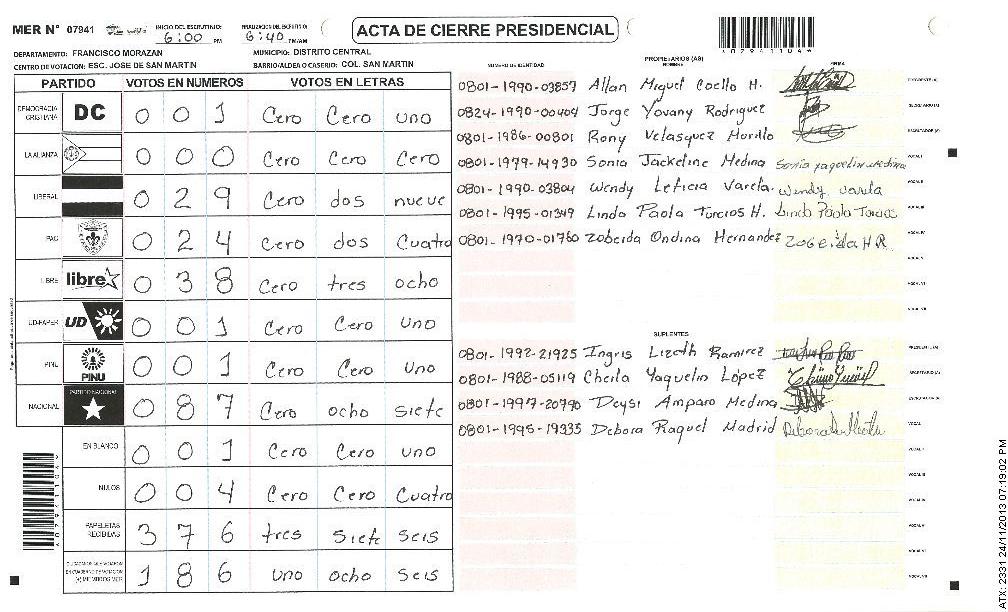 MER N° 07941 INICIO DEL ESCRUTINIO: 6:00 PM FINALIZACION DEL ESCRUTINIO: 6:40 PM/AM
ACTA DE CIERRE PRESIDENCIAL
DEPARTAMENTO: FRANCISCO MORAZAN MUNICIPIO: DISTRITO CENTRAL
CENTRO DE VOTACION: ESC. JOSE DE SAN MARTIN BARRIO/ALDEA O CASERIO: COL. SAN MARTIN
PARTIDO VOTOS EN NÚMEROS VOTOS EN LETRAS
DEMOCRACIA CRISTIANA DC 0 0 1 Cero Cero uno
LA ALIANZA 0 0 0 Cero Cero Cero
LIBERAL 0 2 9 Cero dos nueve
PAC 0 2 4 Cero dos Cuatro
LIBRE libre 0 3 8 Cero tres ocho
UD-FAPER UD 0 0 1 Cero Cero uno
PINU PINU 0 0 1 Cero Cero uno
NACIONAL PARTIDO NACIONAL 0 8 7 Cero ocho siete
EN BLANCO 0 0 1 Cero Cero uno
NULOS 0 0 4 Cero Cero Cuatro
PAPELETAS RECIBIDAS 3 7 6 tres siete seis
1 8 6 uno ocho seis
NÚMERO DE IDENTIDAD PROPIETARIOS (AS) NOMBRE FIRMA
0801-1990-03857 Allan Miguel Coello H.
0824-1990-00404 Jorge Yovany Rodriguez
0801-1986-00801 Rony Velasquez Murillo
0801-1979-14930 Sonia Jackeline Medina Sonia yaquelin Medina
0801-1990-03804 Wendy Leticia Varela. Wendy Varela
0801-1995-01349 Linda Paola Turcios H. Linda Paola Turcios
0801-1970-01760 Zobeida Ondina Hernandez Zobeida H R
SUPLENTES
0801-1992-21925 Ingris Lizeth Ramirez
0801-1988-05119 Cheila Yaquelin López
0801-1997-20790 Deysi Amparo Medina
0801-1995-19335 Debora Raquel Madrid
ATX: 2331 24/11/2013 07:19:02 PM